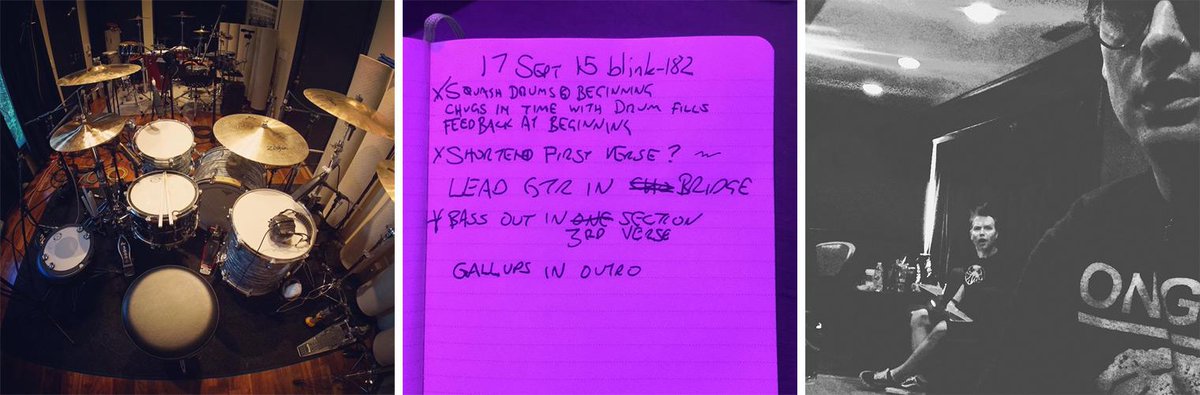 Zildjian
17 SEPT 15 blink-182
XSQUASH DRUMS @ BEGINNING
CHUGS IN TIME WITH DRUM FILLS
FEEDBACK AT BEGINNING
XSHORTEN FIRST VERSE? ~
LEAD GTR IN BRIDGE
BASS OUT IN ONE SECTION
3RD VERSE
GALLUPS IN OUTRO
ONG